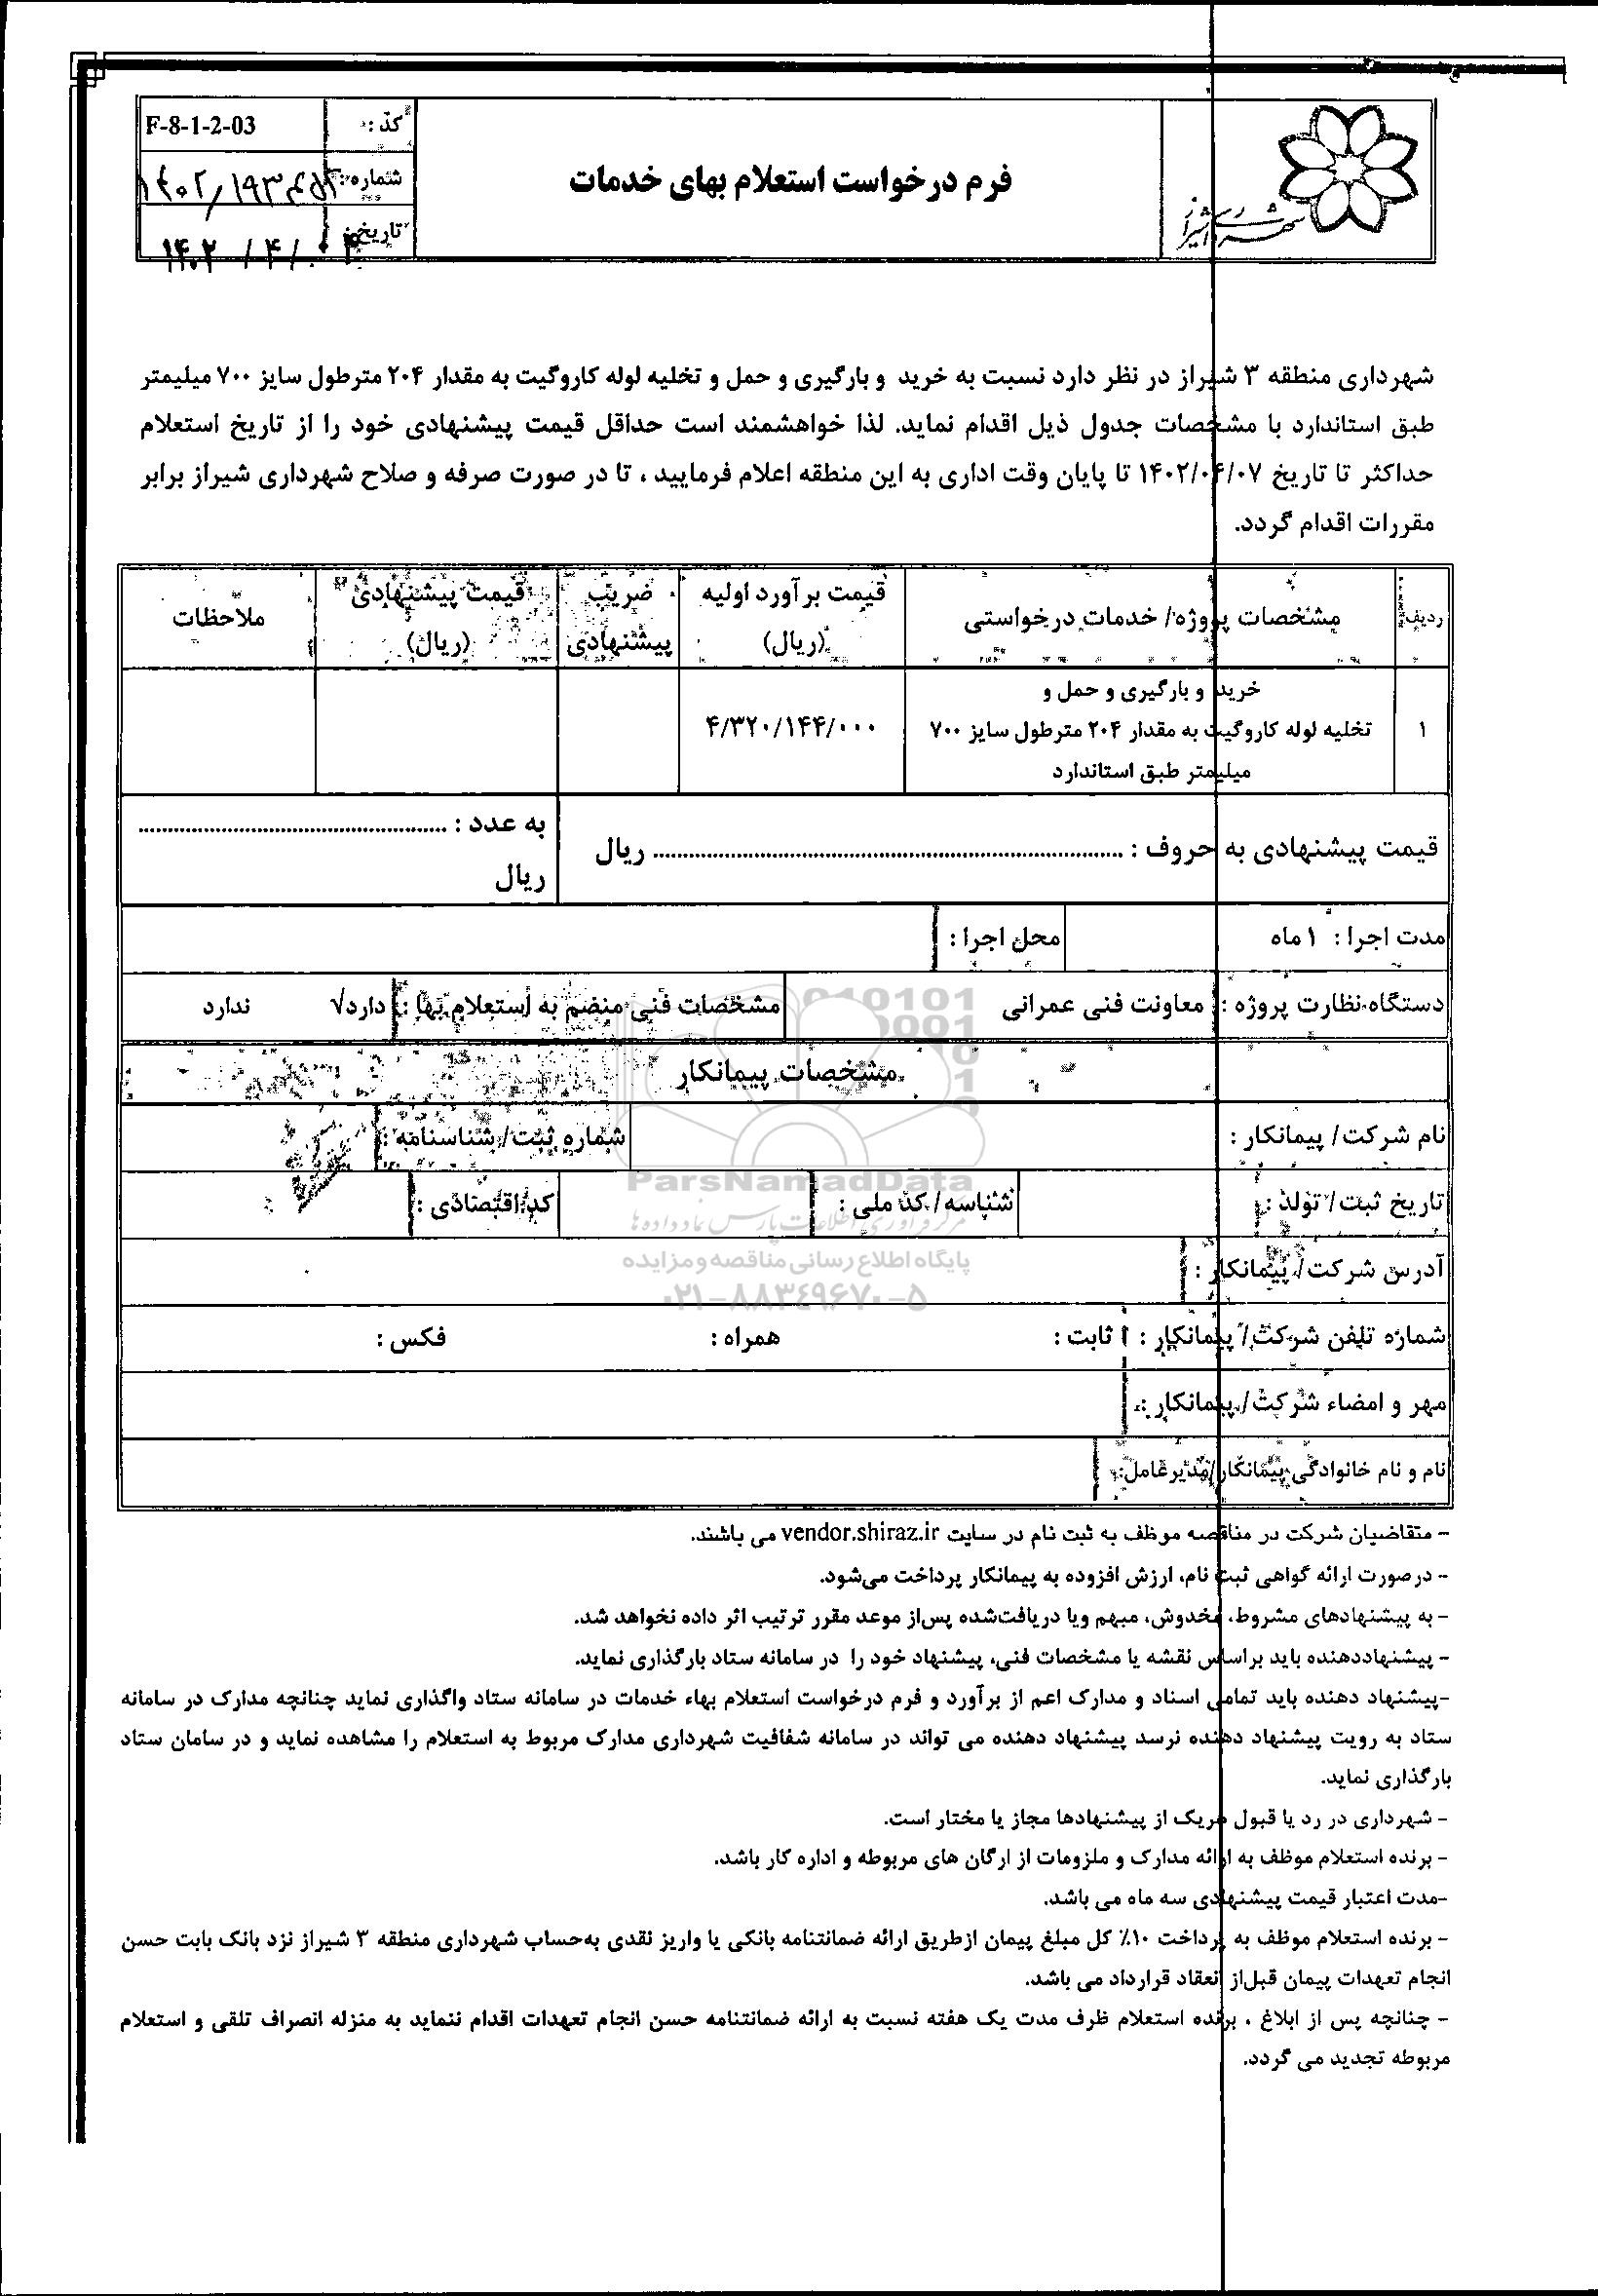 فرم درخواست استعلام بهای خدمات
کد : F-8-1-2-03
شماره :
تاریخ :
شهرداری منطقه ۳ شیراز در نظر دارد نسبت به خرید و بارگیری و حمل و تخلیه لوله کاروگیت به مقدار ۲۰۴ مترطول سایز ۷۰۰ میلیمتر
طبق استاندارد با مشخصات جدول ذیل اقدام نماید. لذا خواهشمند است حداقل قیمت پیشنهادی خود را از تاریخ استعلام
حداکثر تا تاریخ ۱۴۰۲/۰۴/۰۷ تا پایان وقت اداری به این منطقه اعلام فرمایید ، تا در صورت صرفه و صلاح شهرداری شیراز برابر
مقررات اقدام گردد.
ردیف مشخصات پروژه/ خدمات درخواستی قیمت برآورد اولیه (ریال) ضریب پیشنهادی قیمت پیشنهادی (ریال) ملاحظات
خرید و بارگیری و حمل و
۱ تخلیه لوله کاروگیت به مقدار ۲۰۴ مترطول سایز ۷۰۰ ۴/۳۲۰/۱۴۴/۰۰۰
میلیمتر طبق استاندارد
قیمت پیشنهادی به حروف : ........................................ ریال به عدد : ........................................
ریال
مدت اجرا : ۱ ماه محل اجرا :
دستگاه نظارت پروژه : معاونت فنی عمرانی مشخصات فنی منضم به استعلام بها : دارد√ ندارد
مشخصات پیمانکار
نام شرکت/ پیمانکار : شماره ثبت/ شناسنامه :
تاریخ ثبت/ تولد : شناسه/ کد ملی : کد اقتصادی :
آدرس شرکت/ پیمانکار :
شماره تلفن شرکت/ پیمانکار : ثابت : همراه : فکس :
مهر و امضاء شرکت/ پیمانکار :
نام و نام خانوادگی پیمانکار/مدیرعامل:
- متقاضیان شرکت در مناقصه موظف به ثبت نام در سایت vendor.shiraz.ir می باشند.
- درصورت ارائه گواهی ثبت نام، ارزش افزوده به پیمانکار پرداخت می‌شود.
- به پیشنهادهای مشروط، مخدوش، مبهم ویا دریافت‌شده پس‌از موعد مقرر ترتیب اثر داده نخواهد شد.
- پیشنهاددهنده باید براساس نقشه یا مشخصات فنی، پیشنهاد خود را در سامانه ستاد بارگذاری نماید.
-پیشنهاد دهنده باید تمامی اسناد و مدارک اعم از برآورد و فرم درخواست استعلام بهاء خدمات در سامانه ستاد واگذاری نماید چنانچه مدارک در سامانه
ستاد به رویت پیشنهاد دهنده نرسد پیشنهاد دهنده می تواند در سامانه شفافیت شهرداری مدارک مربوط به استعلام را مشاهده نماید و در سامان ستاد
بارگذاری نماید.
- شهرداری در رد یا قبول هریک از پیشنهادها مجاز یا مختار است.
- برنده استعلام موظف به ارائه مدارک و ملزومات از ارگان های مربوطه و اداره کار باشد.
-مدت اعتبار قیمت پیشنهادی سه ماه می باشد.
- برنده استعلام موظف به پرداخت ۱۰٪ کل مبلغ پیمان ازطریق ارائه ضمانتنامه بانکی یا واریز نقدی به‌حساب شهرداری منطقه ۳ شیراز نزد بانک بابت حسن
انجام تعهدات پیمان قبل‌از انعقاد قرارداد می باشد.
- چنانچه پس از ابلاغ ، برنده استعلام ظرف مدت یک هفته نسبت به ارائه ضمانتنامه حسن انجام تعهدات اقدام ننماید به منزله انصراف تلقی و استعلام
مربوطه تجدید می گردد.
ParsNamadData
پایگاه اطلاع رسانی مناقصه و مزایده
۰۲۱-۸۸۳۴۹۶۷۰-۵